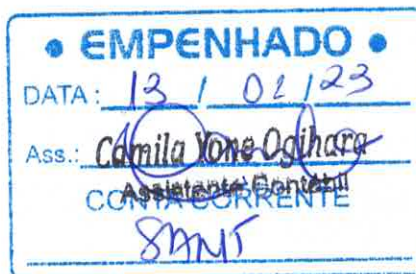 • EMPENHADO •
DATA: 13 / 01 / 23
Ass.: Camila Yone Ogihara
Assistente Contábil
CONTA CORRENTE
SANT